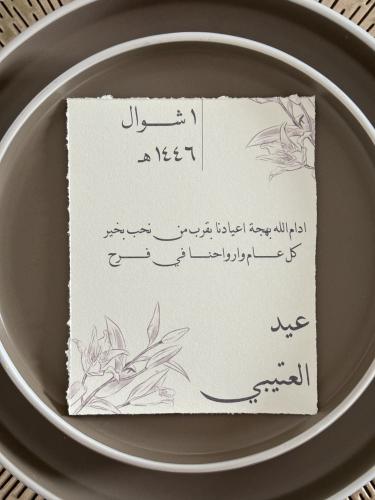 ١ شـوال
١٤٤٦هـ
ادام الله بهجة اعيادنا بقرب من نحب بخير
كل عـام وارواحنـا في فـرح
عيد
العتيبي